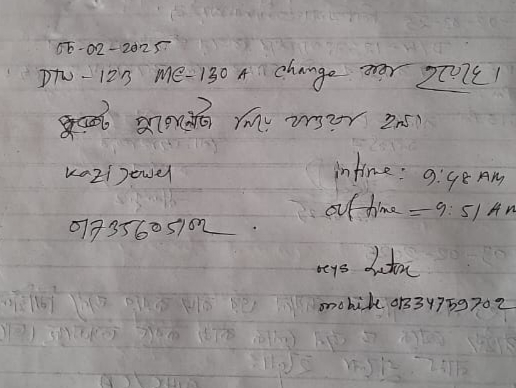 05-02-2025
DTW - 123 MC-130 A change করা হয়েছে।
নিয়ে যাওয়া হল।
Kazi Jewel
in time: 9:48 AM
out time = 9:51 AM
01735605102
mobile 01334759702